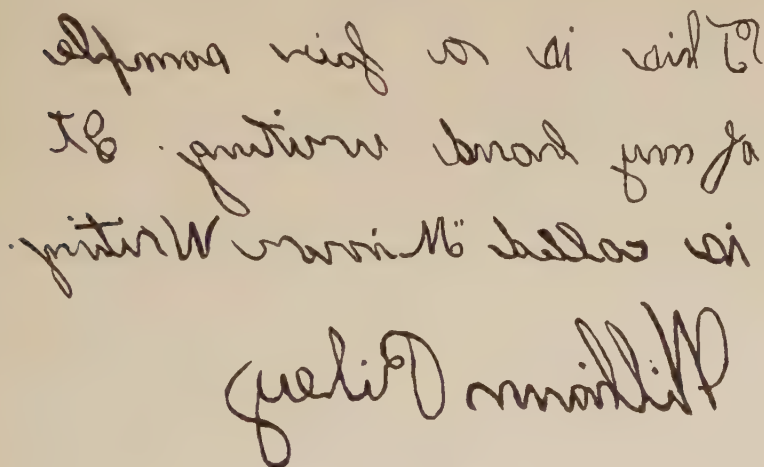 This is a fair sample
of my hand writing. It
is called "Mirror Writing.
William Riley